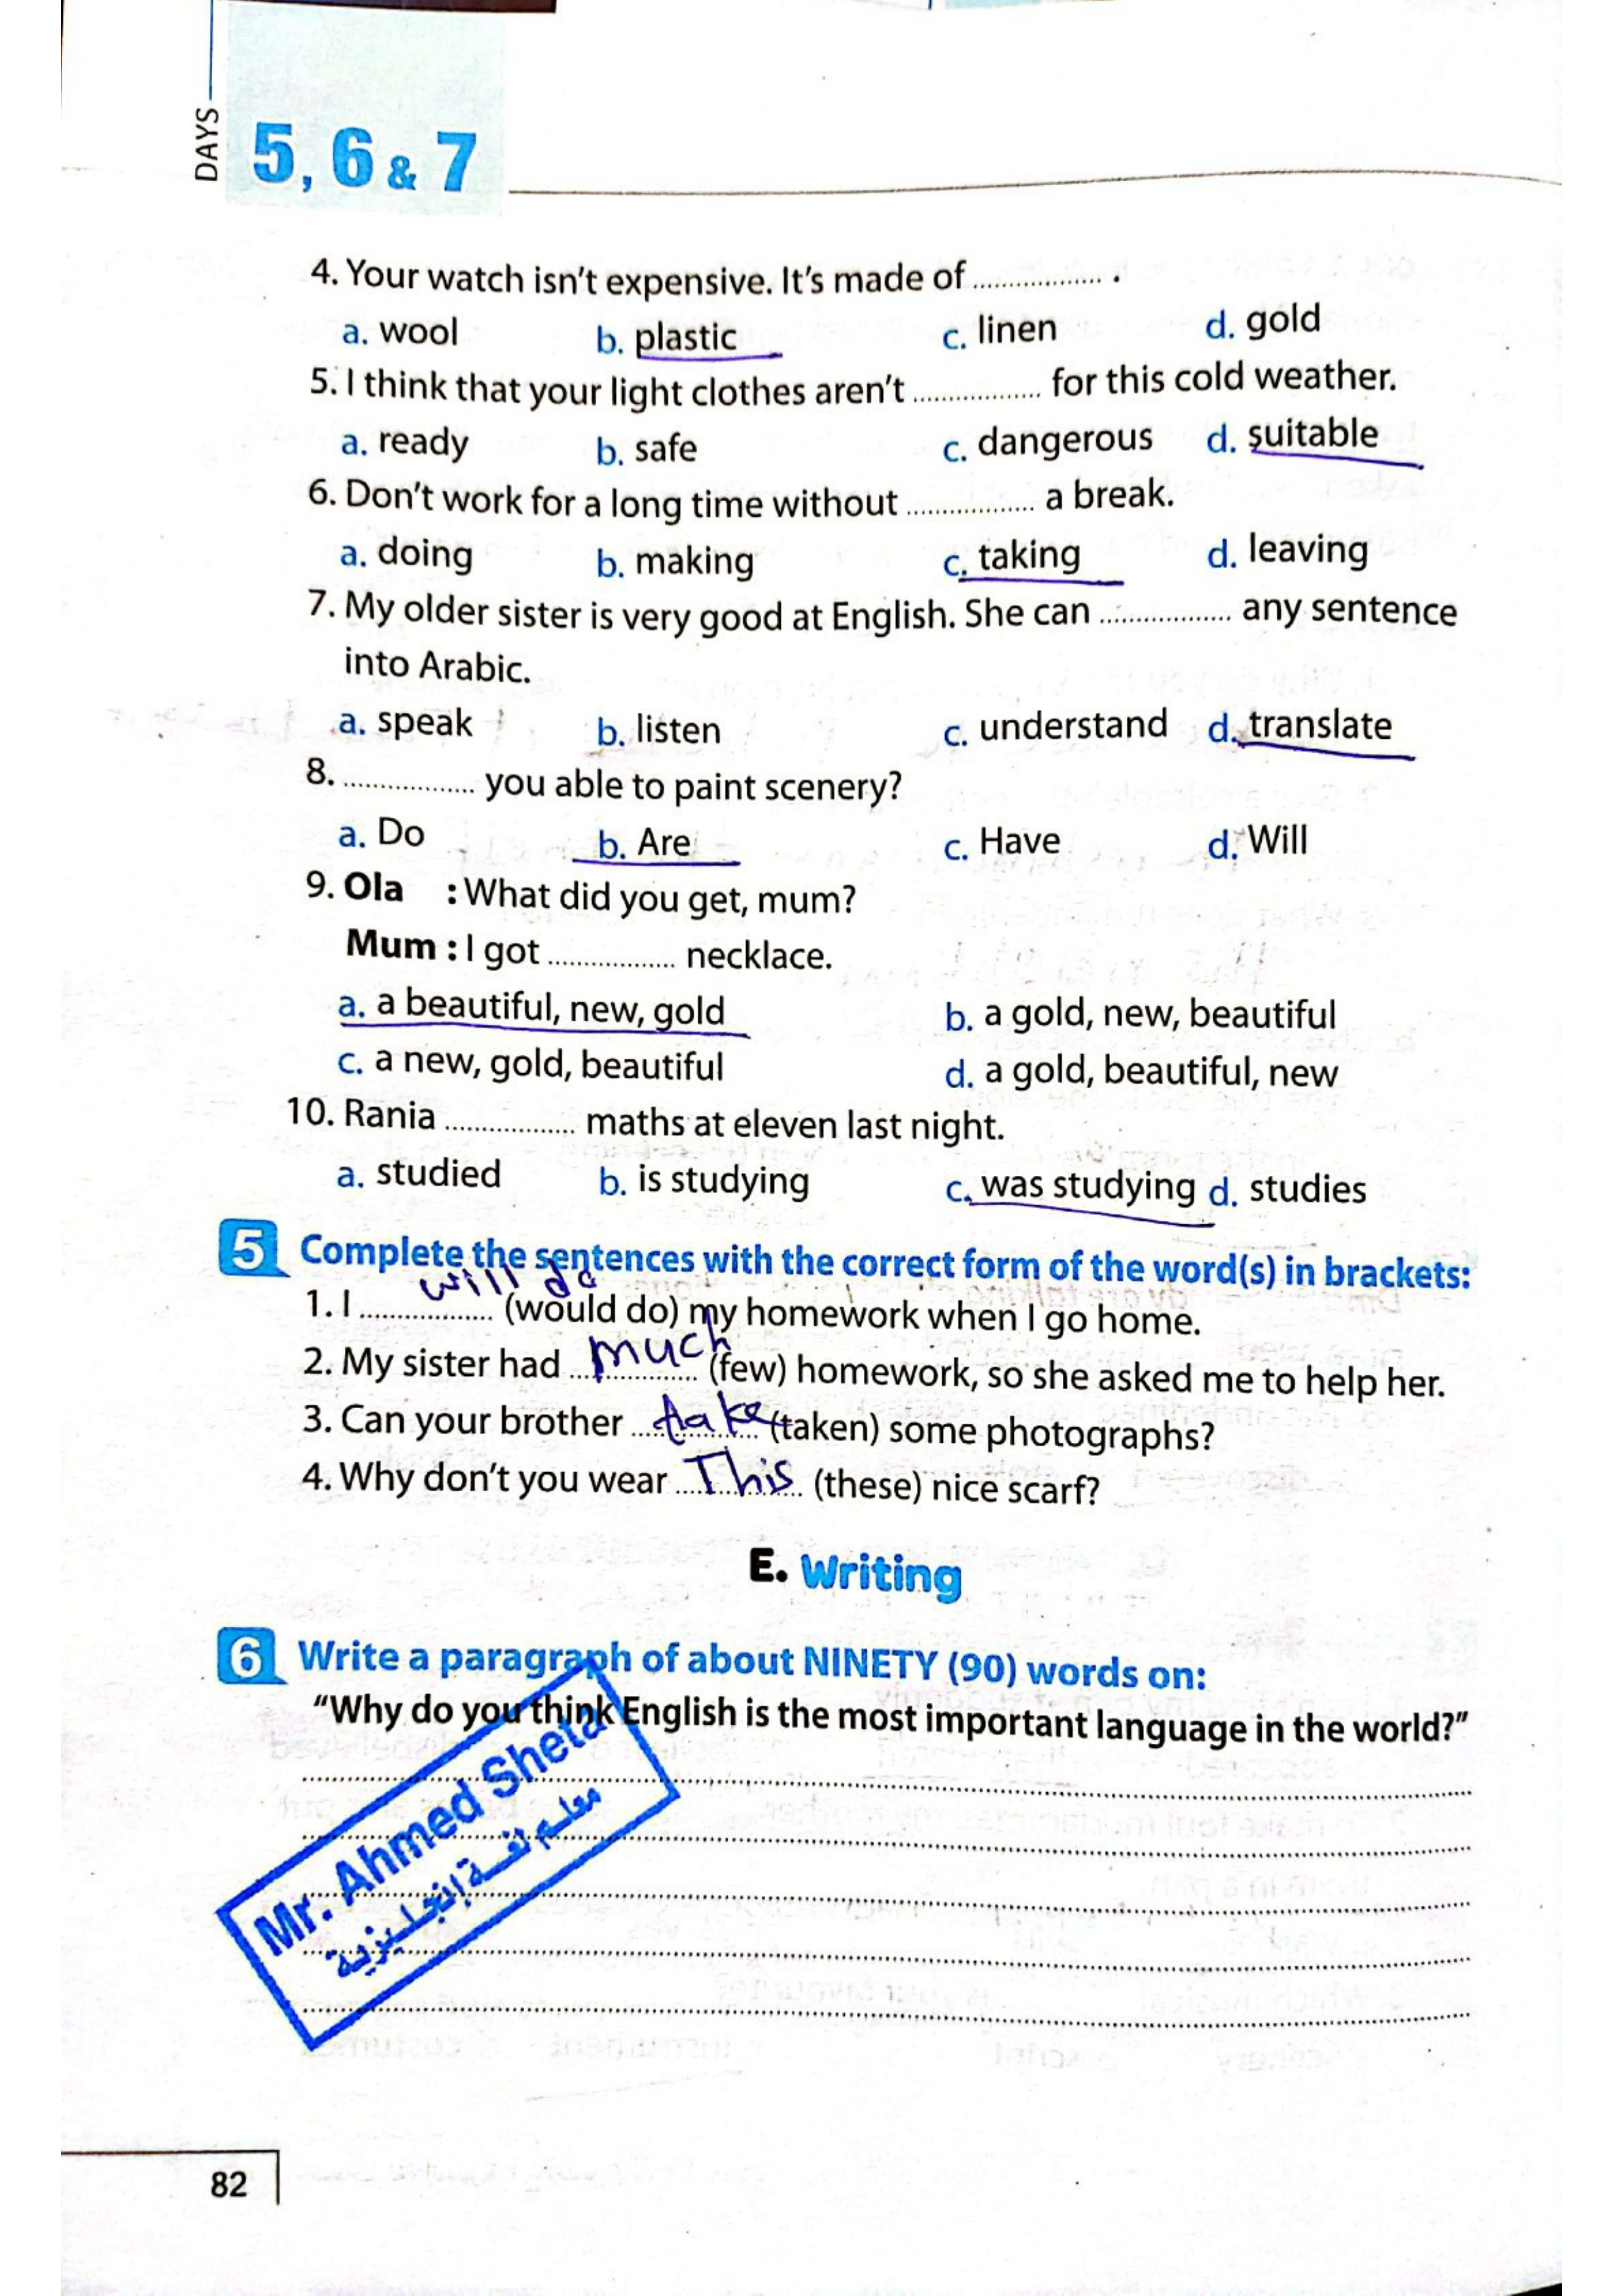 DAYS
5, 6 & 7
4. Your watch isn't expensive. It's made of .................. .
a. wool b. plastic c. linen d. gold
5. I think that your light clothes aren't .................. for this cold weather.
a. ready b. safe c. dangerous d. suitable
6. Don't work for a long time without .................. a break.
a. doing b. making c. taking d. leaving
7. My older sister is very good at English. She can .................. any sentence
into Arabic.
a. speak b. listen c. understand d. translate
8. .................. you able to paint scenery?
a. Do b. Are c. Have d. Will
9. Ola : What did you get, mum?
Mum : I got .................. necklace.
a. a beautiful, new, gold b. a gold, new, beautiful
c. a new, gold, beautiful d. a gold, beautiful, new
10. Rania .................. maths at eleven last night.
a. studied b. is studying c. was studying d. studies
5 Complete the sentences with the correct form of the word(s) in brackets:
1. I will do (would do) my homework when I go home.
2. My sister had much (few) homework, so she asked me to help her.
3. Can your brother take (taken) some photographs?
4. Why don't you wear This (these) nice scarf?
E. Writing
6 Write a paragraph of about NINETY (90) words on:
"Why do you think English is the most important language in the world?"
Mr. Ahmed Sheta
معلم لغة إنجليزية
82